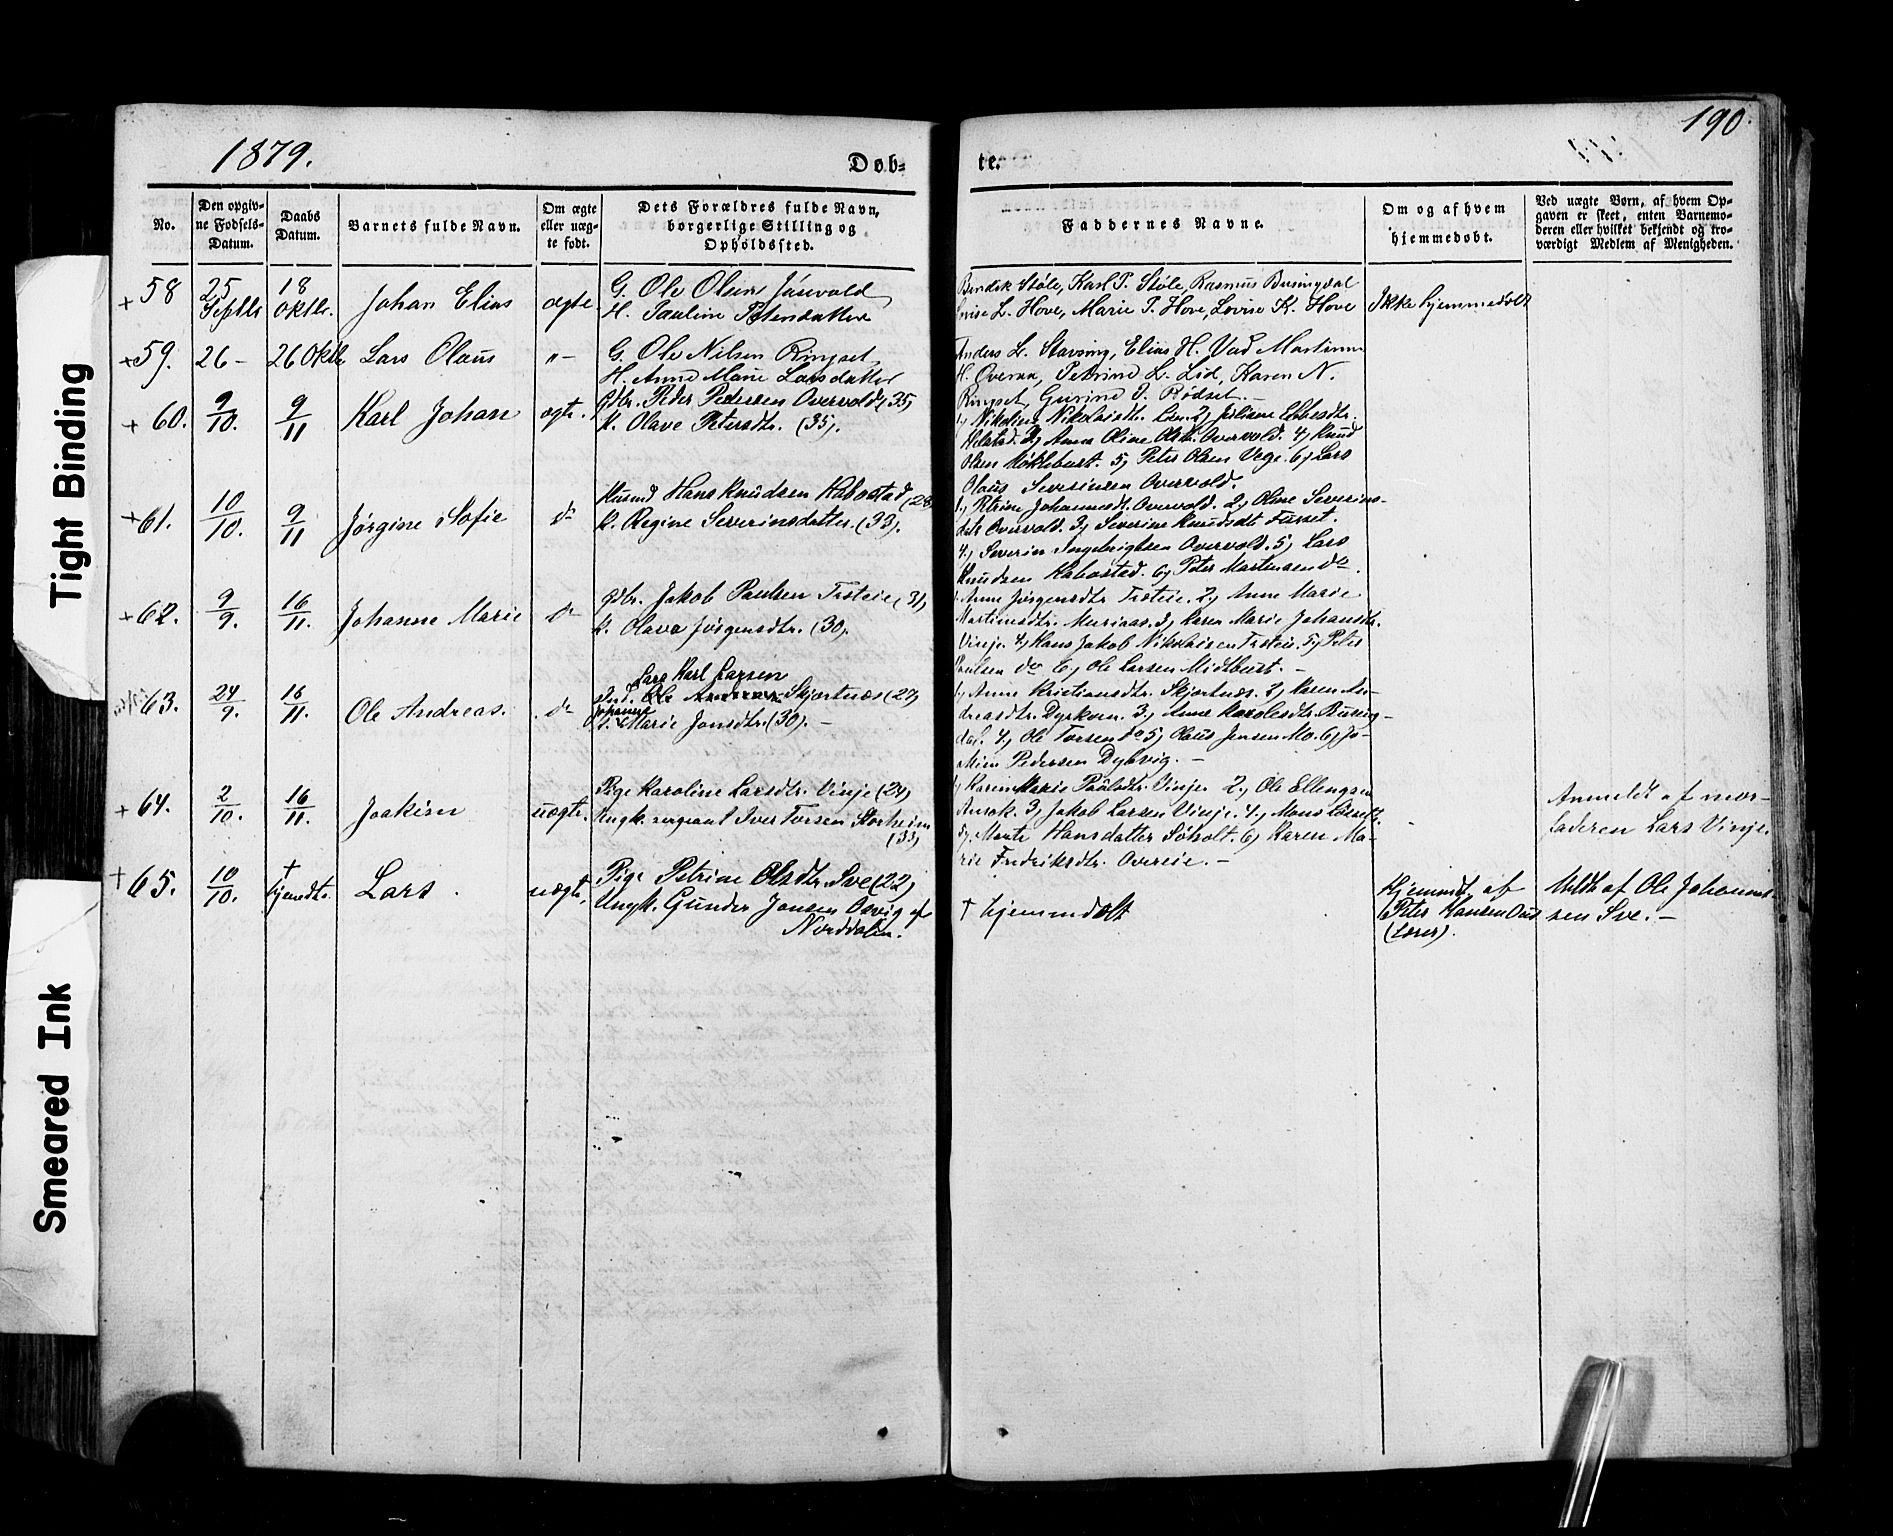 190.
1879.
Døb-
te.
No.
Den opgiv-
ne Fødsels-
Datum.
Daabs
Datum.
Barnets fulde Navn.
Om ægte
eller uæg-
te født.
Dets Forældres fulde Navn,
borgerlige Stilling og
Opholdssted.
Faddernes Navne.
Om og af hvem
hjemmedøbt.
Ved uægte Børn, af hvem Op-
gaven er skeet, enten Barnemo-
deren eller hvilket bekjendt og tro-
værdigt Medlem af Menigheden.
+ 58
25
Septbr
18
Oktbr.
Johan Elias
ægte
G. Ole Olsen
H. Pauline Petersdatter
Bendik Støle, Karl P. Støle, Rasmus Busingdal
L. Hove, Marie P. Hove, Lovise K. Hove
Ikke hjemmedøbt
+ 59.
26 –
26 Oktb
Lars Olaus
"–
G. Ole Nilsen Ringset
H. Anne Marie Larsdatter
Anders L. Stavseng, Elias H. Vad Martinus
H. Overaa, Petrine L. Lid, Karen N.
Ringset, Gurine P. Rødset. –
+ 60.
9/10.
9/11
Karl Johan
ægte.
Gbr. Peder Pedersen Overvold (35)
K. Olave Petersdtr. (35).
1, Nikoline Nikolaisdtr. 2, Juliane Ebbesdtr.
Helstad. 3, Anna Oline Olsdtr. Overvold. 4, Knud
Olsen Møklebust. 5, Peter Olsen Vege. 6, Lars
Olaus Severinsen Overvold.
+ 61.
10/10.
9/11
Jørgine Sofie
do
Husmd Hans Knudsen Kabostad (28
K. Regine Severinsdatter. (33).
1, Petrine Johannesdt. Overvold. 2, Oline Severins-
datr Overvold. 3, Severine Knudsdt Furset.
4, Severin Ingebrigtsen Overvold. 5, Lars
Knudsen Kabostad. 6, Peter Martinsen do.
+ 62.
9/9.
16/11.
Johanne Marie
do
Gbr. Jakob Paulsen Trsteie (31)
K. Olava Jørgensdtr. (30).
1, Anne Jørgensdtr Trsteie. 2, Anne Marie
Martinusdtr. 3, Karen Marie Johansdt.
Vinje. 4, Hans Jakob Nikolaisen Trsteie. 5, Peter
Paulsen do 6, Ole Larsen Midtbust. –
63.
24/9.
16/11.
Ole Andreas.
do
Lars Karl Larsen
Ole Skjortnæs (27)
Johanne
K. Marie Jonsdtr. (30). –
1, Anne Kristiansdtr. Skjortnæs. 2, Karen An-
dreasdtr. Dyrkorn. 3, Anne Karolesdtr. Busing-
dal. 4, Ole Torsen do 5, Olaus Jensen Mo. 6, Jo-
Pedersen Dybvig. –
+ 64.
2/10.
16/11.
Joakim
uægte.
Pige Karoline Larsdtr. Vinje (24)
Ungk. sergeant Iver Torsen Storheim
(33)
1, Karen Marie Paulsdtr. Vinje 2, Ole Ellingsen
3, Jakob Larsen Vinje. 4, Mons
5, Marte Hansdatter Søholt. 6, Karen Ma-
rie Fredriksdtr. Overeie. –
Anmeldt af mor-
faderen Lars Vinje.
+ 65.
10/10.
†
hjemdt.
Lars.
uægte.
Pige Petrine Olsdtr. Sve (22)
Ungk. Gunder Jonsen Osvig af
Norddalen.
† hjemmdøbt
Hjemmdt. af
Peter Hansen
(Lærer).
Meldt af Ole Johannes-
sen Sve. –
Tight Binding
Smeared Ink